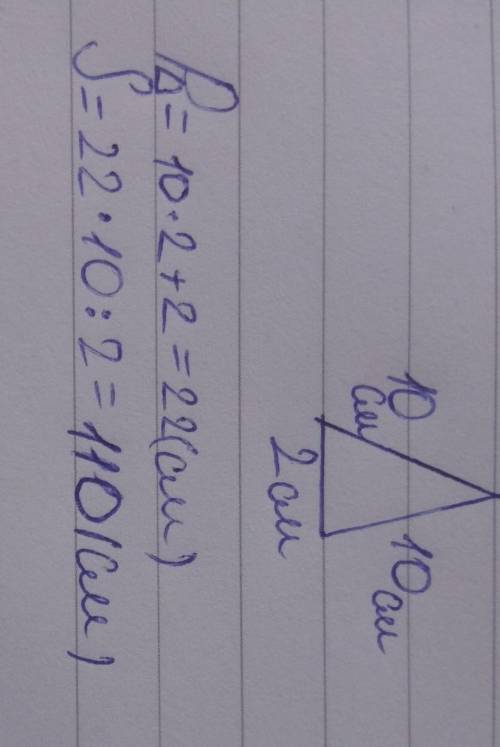 10 см
10 см
2 см
P△ = 10 · 2 + 2 = 22 (см)
S = 22 · 10 : 2 = 110 (см)